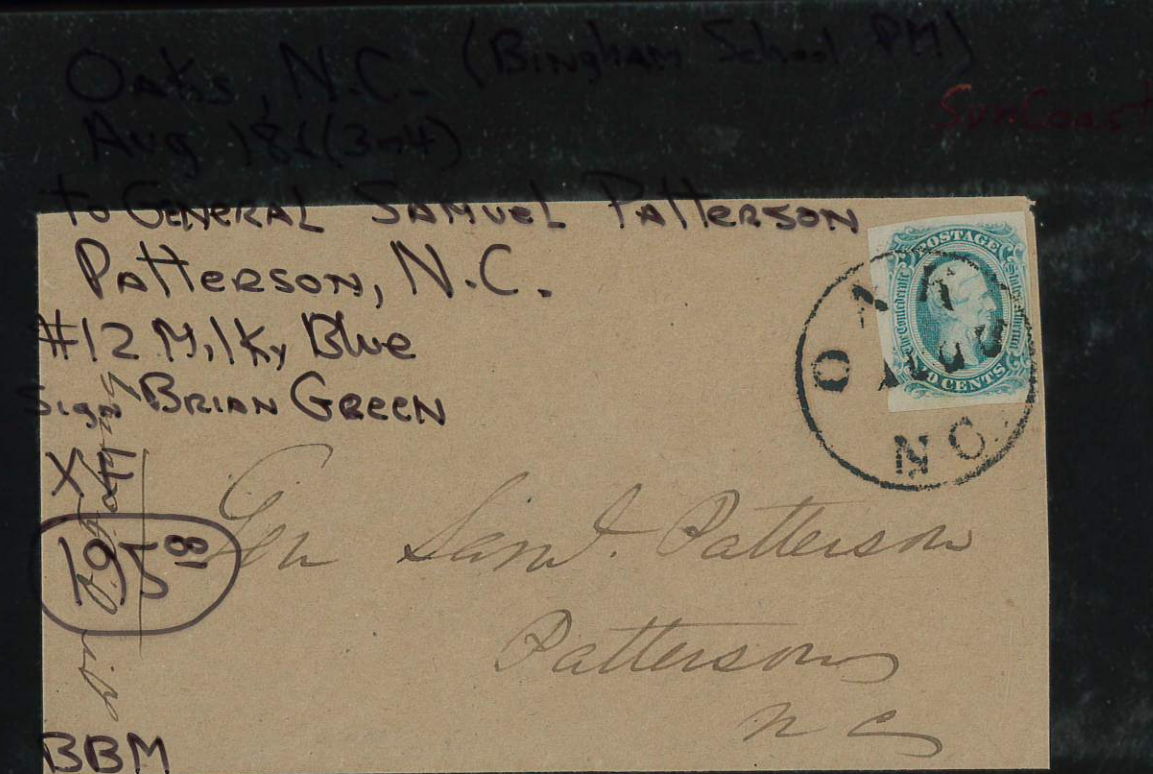 Oaks, N.C. (Bingham School PM)
Aug 186(3or4)
SunCoast
to General Samuel Patterson
Patterson, N.C.
#12 Milky Blue
Sign Brian Green
X
195 18
BBM
POSTAGE
The Confederate States of America
CENTS
OAKS
AUG 8
N C.
Gen Saml. Patterson
Patterson
N C